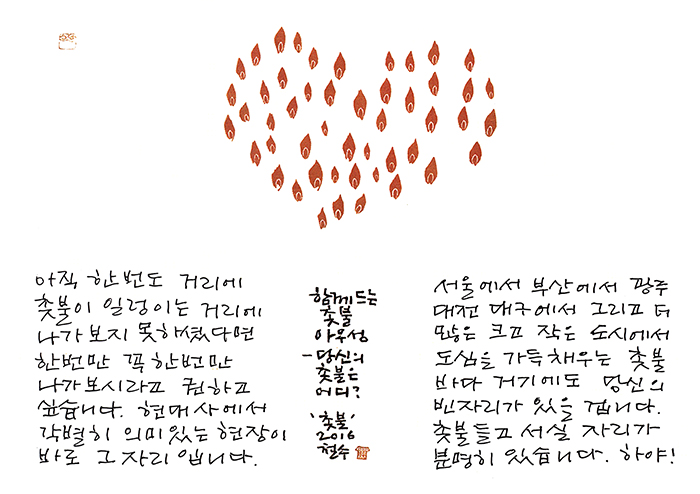 아직 한번도 거리에
촛불이 일렁이는 거리에
나가보지 못하셨다면
한번만 꼭 한번만
나가보시라고 권하고
싶습니다. 현대사에서
각별히 의미있는 현장이
바로 그 자리 입니다.
함께드는
촛불
아우성
-당신의
촛불은
어디?
'촛불'
2016
철수
서울에서 부산에서 광주
대전 대구에서 그리고 더
많은 크고 작은 도시에서
도심을 가득채우는 촛불
바다 거기에도 당신의
빈자리가 있을 겝니다.
촛불들고 서실 자리가
분명히 있습니다. 하야!